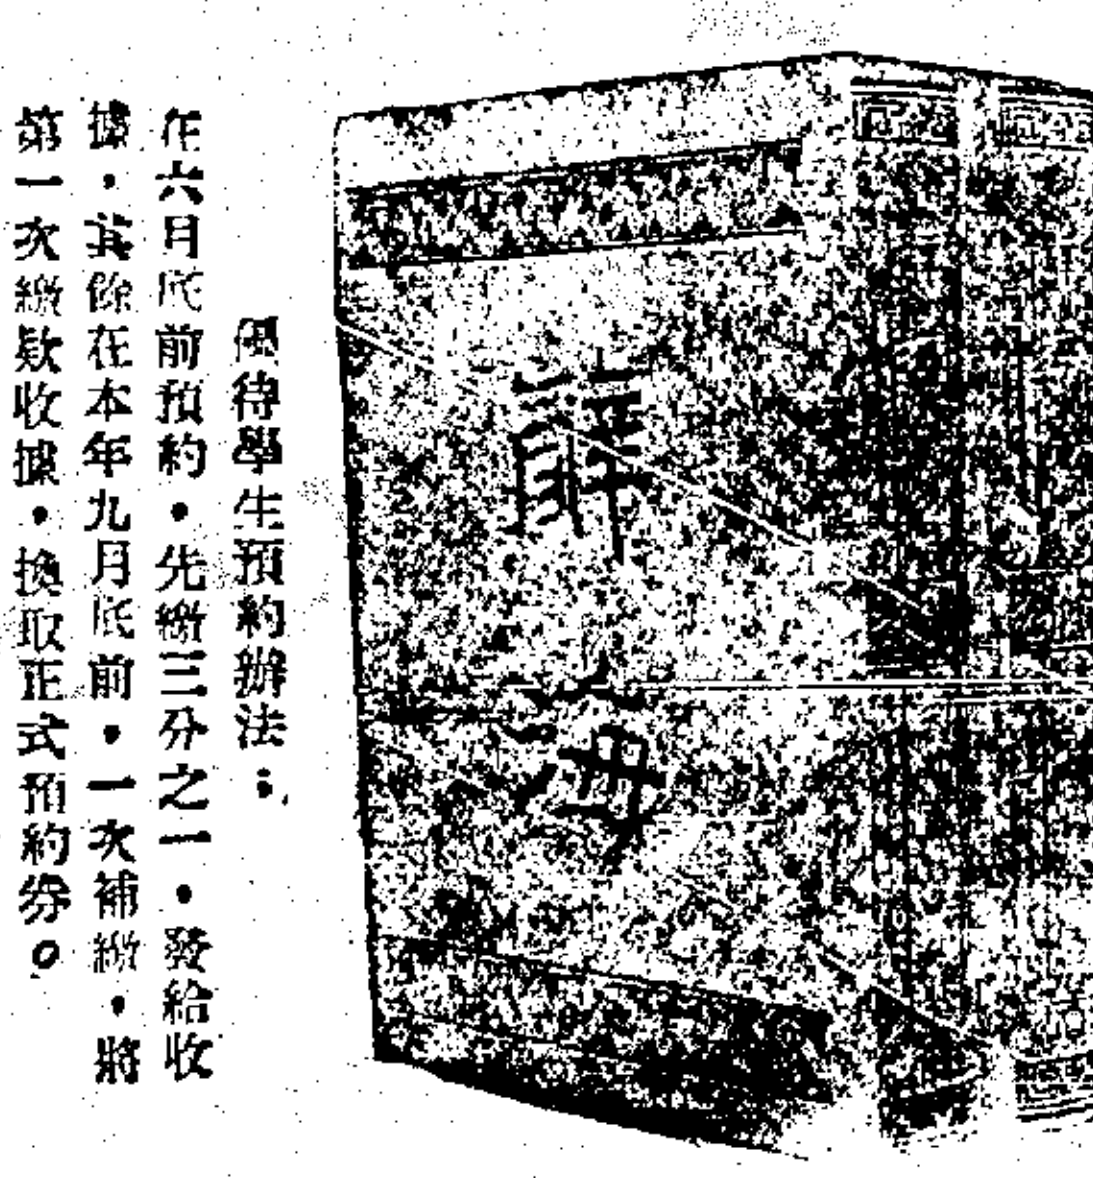 優待學生預約辦法：
在六月底前預約，先繳三分之一，發給收
據，其餘在本年九月底前，一次補繳，將
第一次繳款收據，換取正式預約券。
辭海